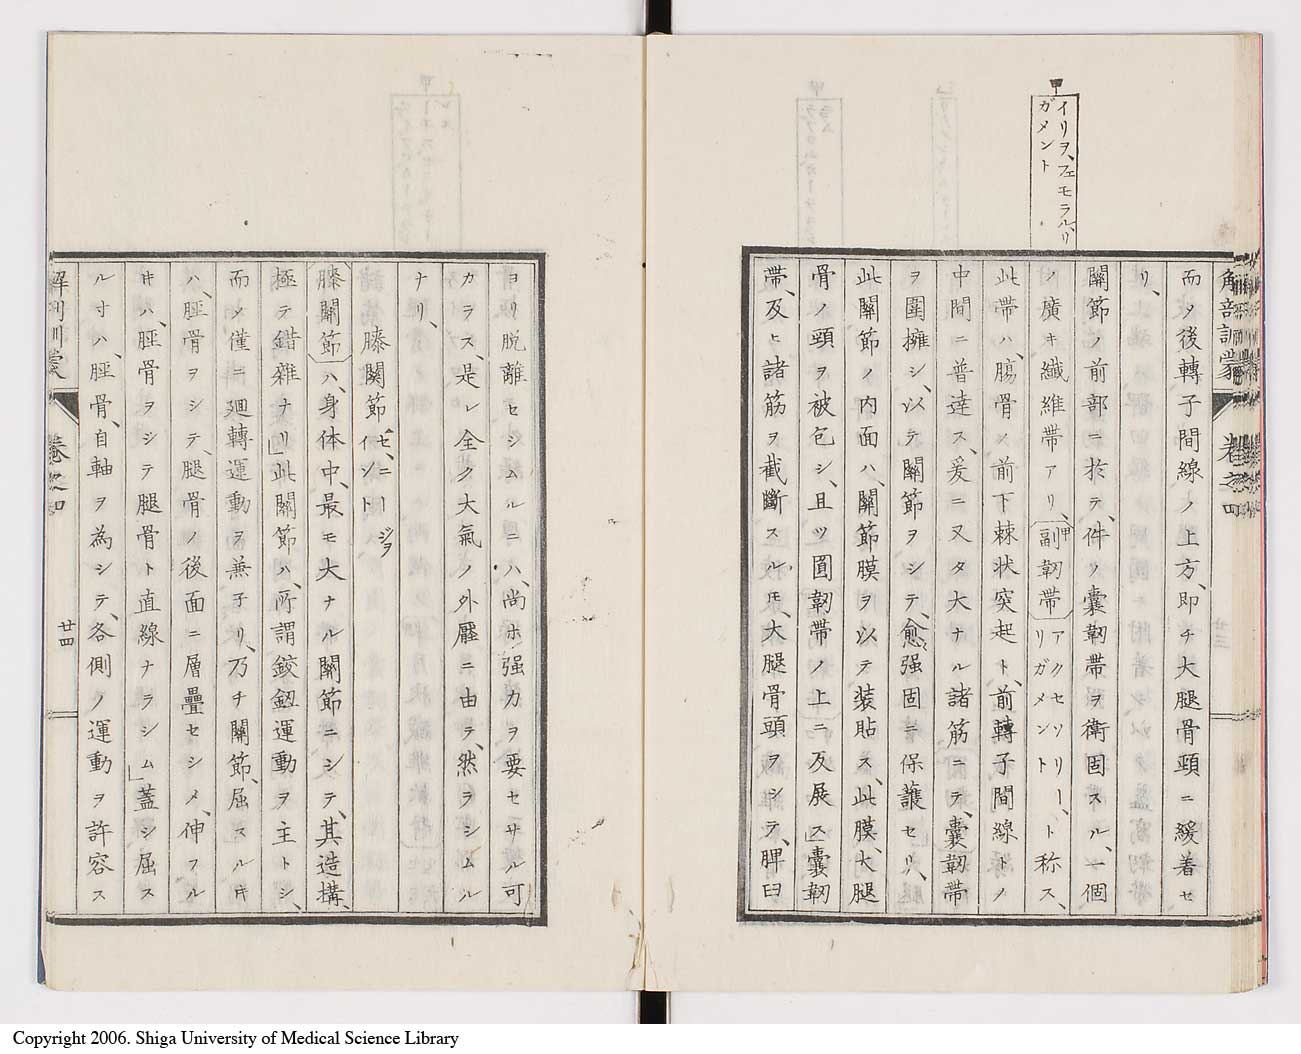 甲
イリヲ、フェモラル、リ
ガメント
解剖訓蒙 卷之四
而〆後轉子間線ノ上方、即チ大腿骨頸ニ緩着セ
リ、
關節ノ前部ニ於テ、件ノ囊韌帯ヲ衛固スル、一個
ノ廣キ纎維帯アリ、甲副韌帯アクセソリー、リガメントト称ス、
此帯ハ、腸骨ノ前下棘状突起ト、前轉子間線トノ
中間ニ普逹ス、爰ニ又タ大ナル諸筋ニテ、囊韌帯
ヲ圍擁シ、以テ關節ヲシテ、愈强固ニ保護セリ、
此關節ノ内面ハ、關節膜ヲ以テ装貼ス、此膜、大腿
骨ノ頸ヲ被包シ、且ツ圓韌帯ノ上ニ反展ス」囊韌
帯、及ヒ諸筋ヲ截斷スルモ、大腿骨頭ヲシテ、髀臼
ヨリ脱離セシムルニハ、尚ホ强力ヲ要セサル可
カラス、是レ全ク大氣ノ外壓ニ由テ、然ラシムル
ナリ、
膝關節セ、ニー、ジョイント
膝關節ハ、身体中、最モ大ナル關節ニシテ、其造搆、
極テ錯雜ナリ」此關節ハ、所謂鉸釼運動ヲ主トシ、
而〆僅ニ廻轉運動ヲ兼子リ、乃チ關節、屈スルキ
ハ、脛骨ヲシテ、腿骨ノ後面ニ層疊セシメ、伸フル
キハ、脛骨ヲシテ腿骨ト直線ナラシム」蓋シ屈ス
ル寸ハ、脛骨、自軸ヲ為シテ、各側ノ運動ヲ許容ス
解剖訓蒙 卷之四 廿四
Copyright 2006. Shiga University of Medical Science Library